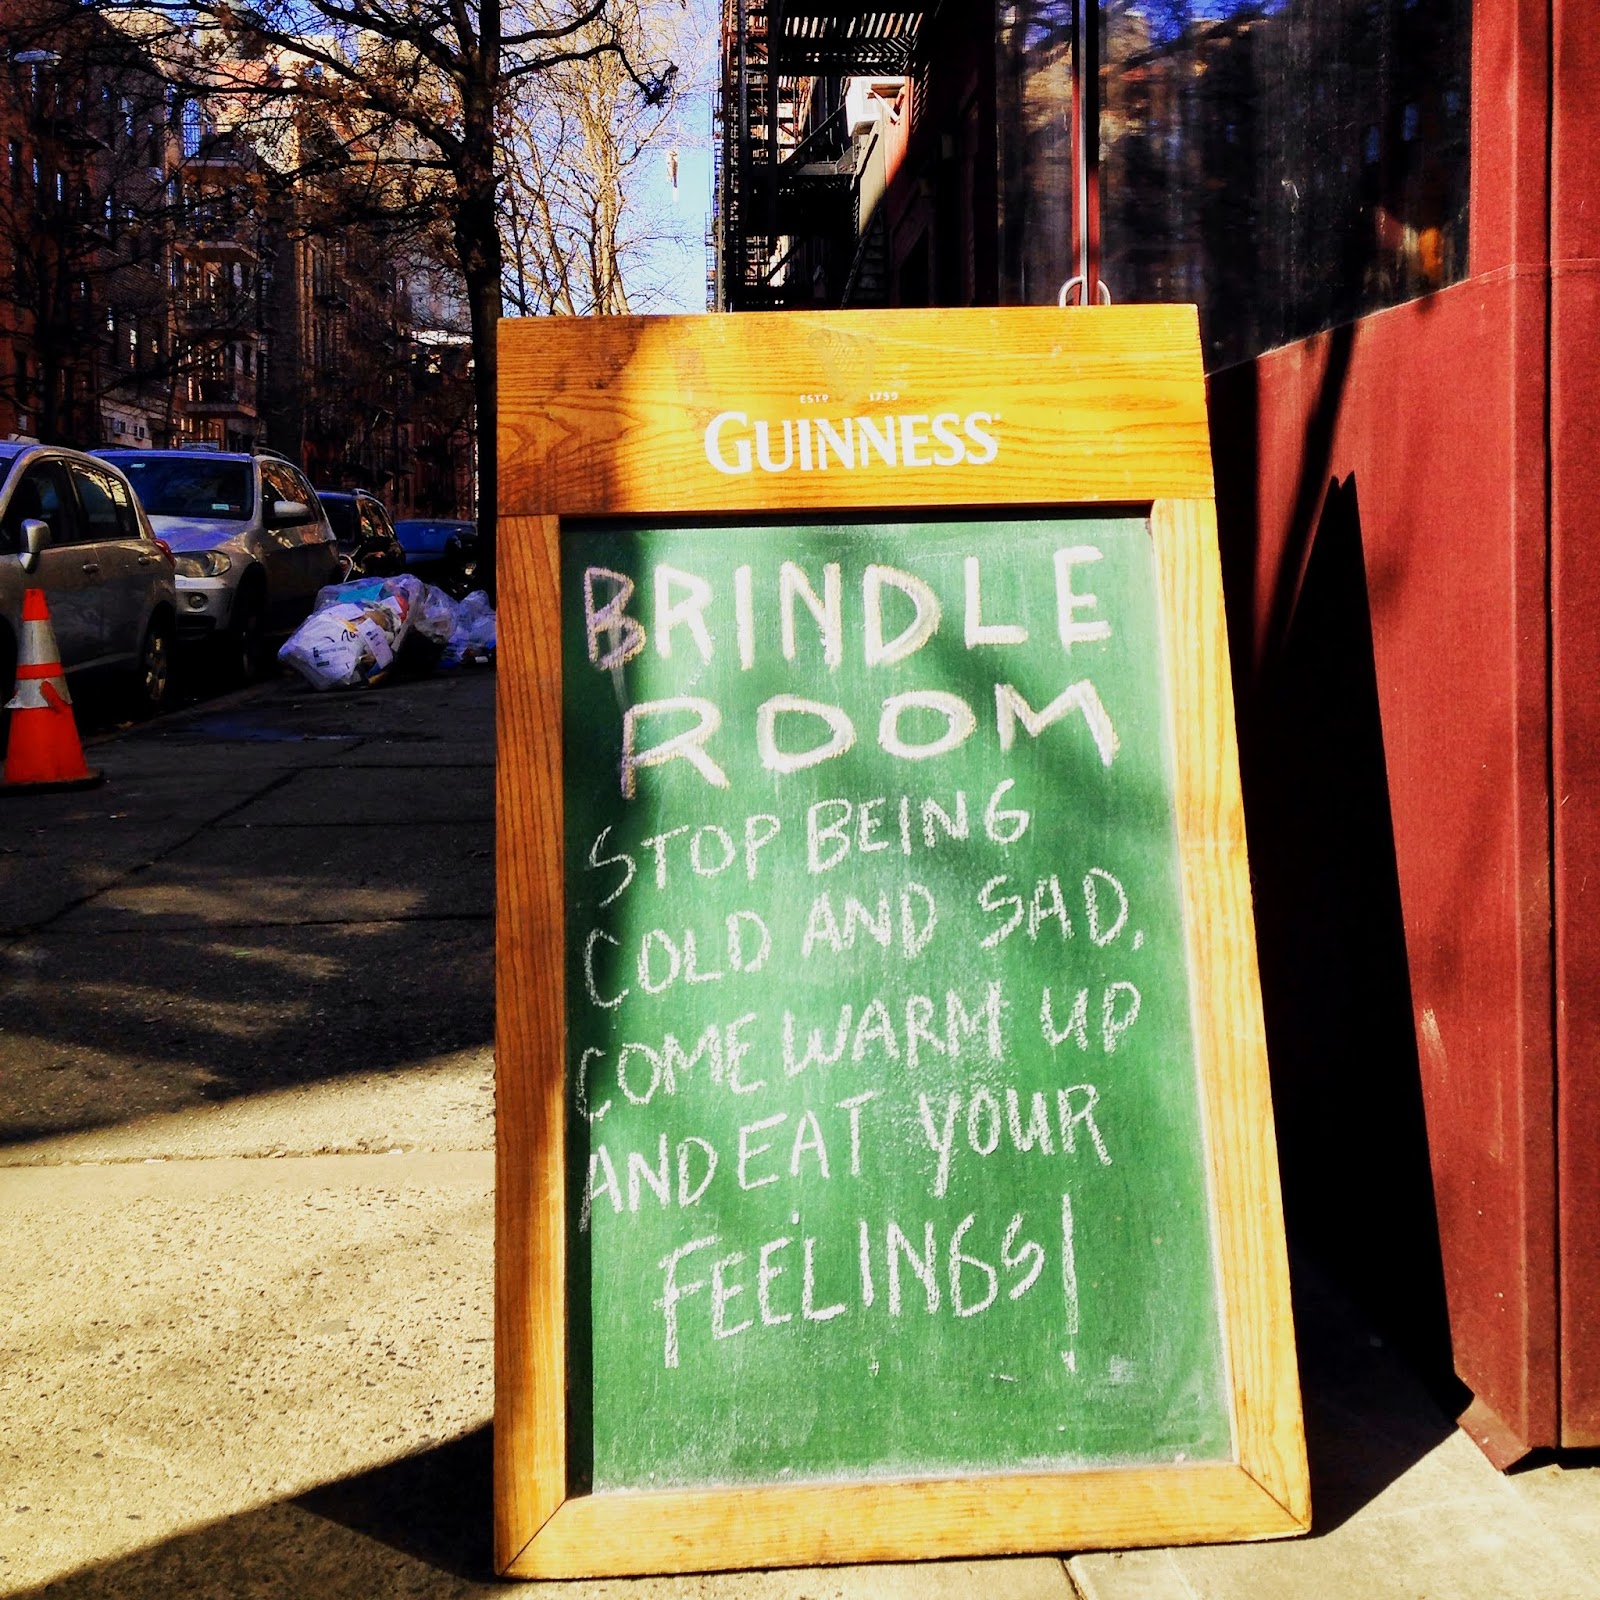 ESTD 1759
GUINNESS
BRINDLE
ROOM
STOP BEING
COLD AND SAD,
COME WARM UP
AND EAT YOUR
FEELINGS!